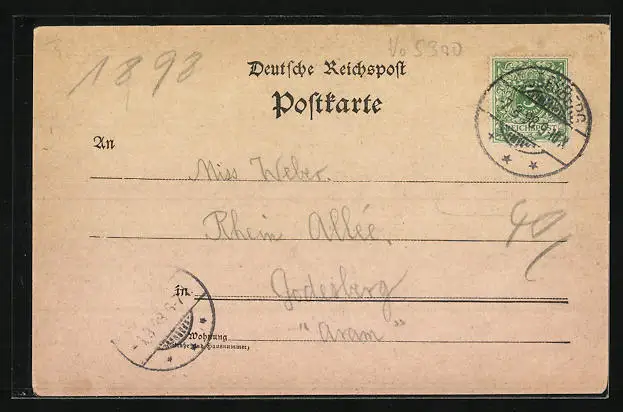 1898
Vo 5300
Deutsche Reichspost
Postkarte
5
REICHSPOST
An
Miss Weber.
Rhein Allée.
40,
in
Godesberg
Wohnung
"Aran"